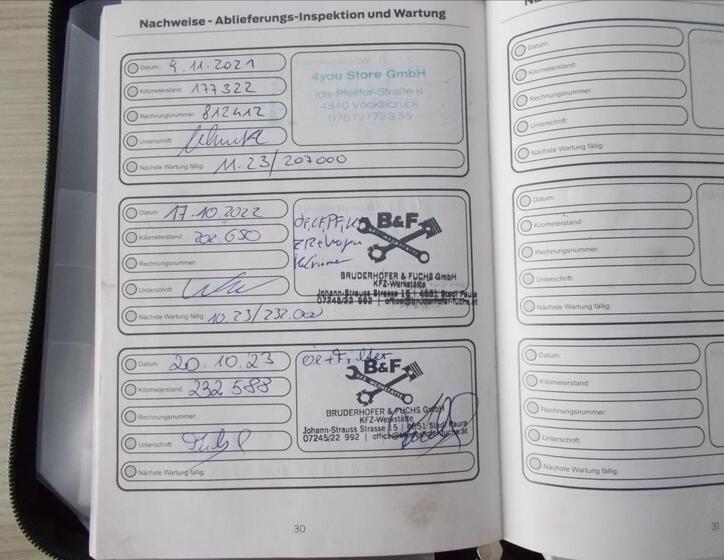 Nachweise - Ablieferungs-Inspektion und Wartung
Datum: 9.11.2021
Kilometerstand: 177322
Rechnungsnummer: 812412
Unterschrift:
Nächste Wartung fällig: 11.23/207000
4you Store GmbH
Ida-Pfeiffer-Straße 8
4840 Vöcklabruck
07672/72855
Datum: 17.10.2022
Kilometerstand: 202.650
Rechnungsnummer:
Unterschrift:
Nächste Wartung fällig: 10.23/232.000
B&F
BRUDERHOFER & FUCHS GmbH
KFZ-Werkstätte
Johann-Strauss Strasse 15 | 4651 Stadl Paura
07245/22 992 | office@bruderhofer-fuchs.at
Datum: 20.10.23
Kilometerstand: 232588
Rechnungsnummer:
Unterschrift:
Nächste Wartung fällig:
Oel+Filter
B&F
BRUDERHOFER & FUCHS GmbH
KFZ-Werkstätte
Johann-Strauss Strasse 15 | 4651 Stadl Paura
07245/22 992 |
30
Datum:
Kilometerstand:
Rechnungsnummer:
Unterschrift:
Nächste Wartung fällig:
Datum:
Kilometerstand:
Rechnungsnummer:
Unterschrift:
Nächste Wartung fällig:
Datum:
Kilometerstand:
Rechnungsnummer:
Unterschrift:
Nächste Wartung fällig:
31